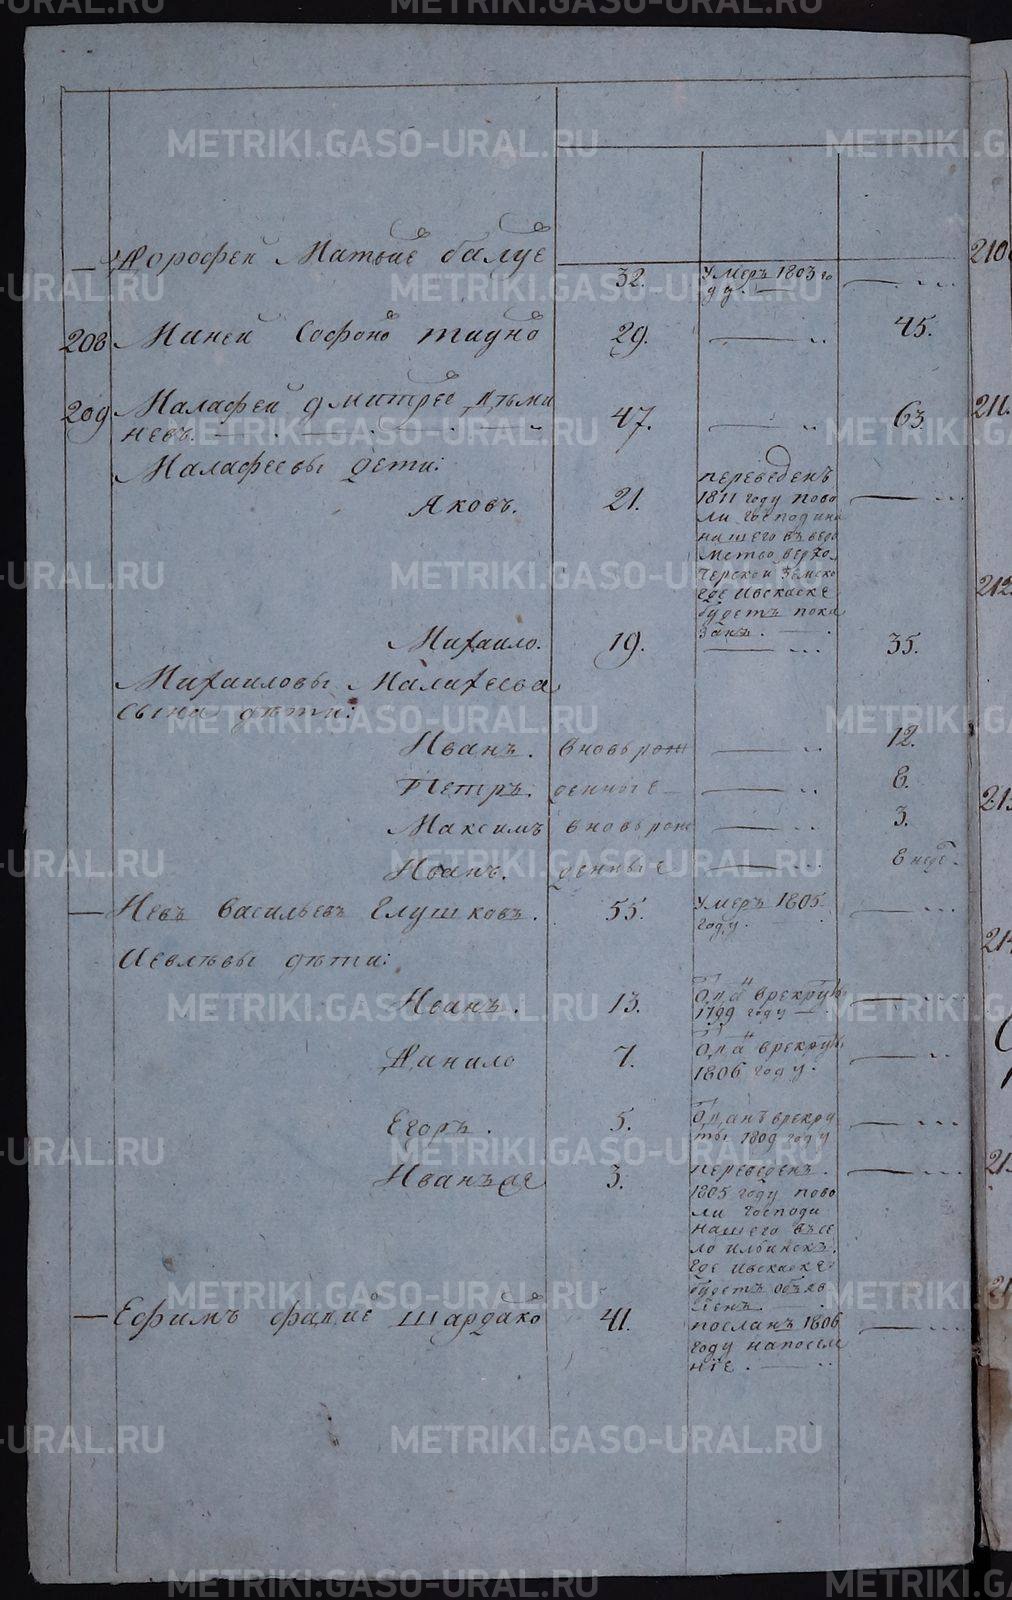 METRIKI.GASO-URAL.RU
— Дорофей Матвѣе балуе 32. умеръ 1803 го
ду. — — ...
208 Миней Софоно тиуно 29. — .. 45.
209 Малафей дмитрее
невъ. — . — . — . — .. 47. — .. 63.
Малафеевы дети:
Яковъ. 21. переведенъ — ...
1811 году пово
ли господина
нашего въ
где ивскаске
будетъ пока
занъ. — .
Михаило. 19. — ... 35.
Михаиловы Малафеева
сына дѣти:
Иванъ. вновь рож — .. 12.
Петръ. денные — — .. 8.
Максимъ вновь рож — .. 3.
Иванъ. денные — .. 8 неде.
— Иевъ Васильевъ Глушковъ. 55. умеръ 1805. — ...
году. — .
Иевлѣвы дѣти:
Иванъ. 13. Отда врекруты — ...
1799 году —
Данило 7. Отда врекруты — ..
1806 году.
Егоръ. 5. Отданъ врекру — ...
ты 1809 году
Иванъ же 3. переведенъ. — ...
1805 году пово
ли господи
нашего въ се
ло ильинскъ.
где ивскаске
будетъ объяв
ленъ — .
— Ефимъ фадие шардако 41. посланъ 1806 — ...
году на поселе
ніе. — ..
210
211.
212
213
214